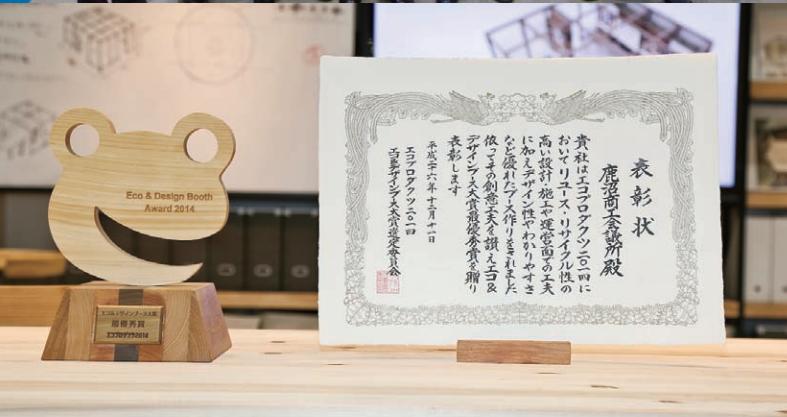 Eco & Design Booth
Award 2014
エコ&デザインブース大賞
最優秀賞
エコプロダクツ2014
表彰状
鹿沼商工会議所殿
貴社はエコプロダクツ二〇一四に
おいてリユース・リサイクル性の
高い設計・施工や運営面での工夫
に加えデザイン性やわかりやすさ
など優れたブース作りをされました
依ってその創意工夫を讃えエコ&
デザインブース大賞最優秀賞を贈り
表彰します
平成二十六年十二月十一日
エコプロダクツ二〇一四
エコ&デザインブース大賞選定委員会